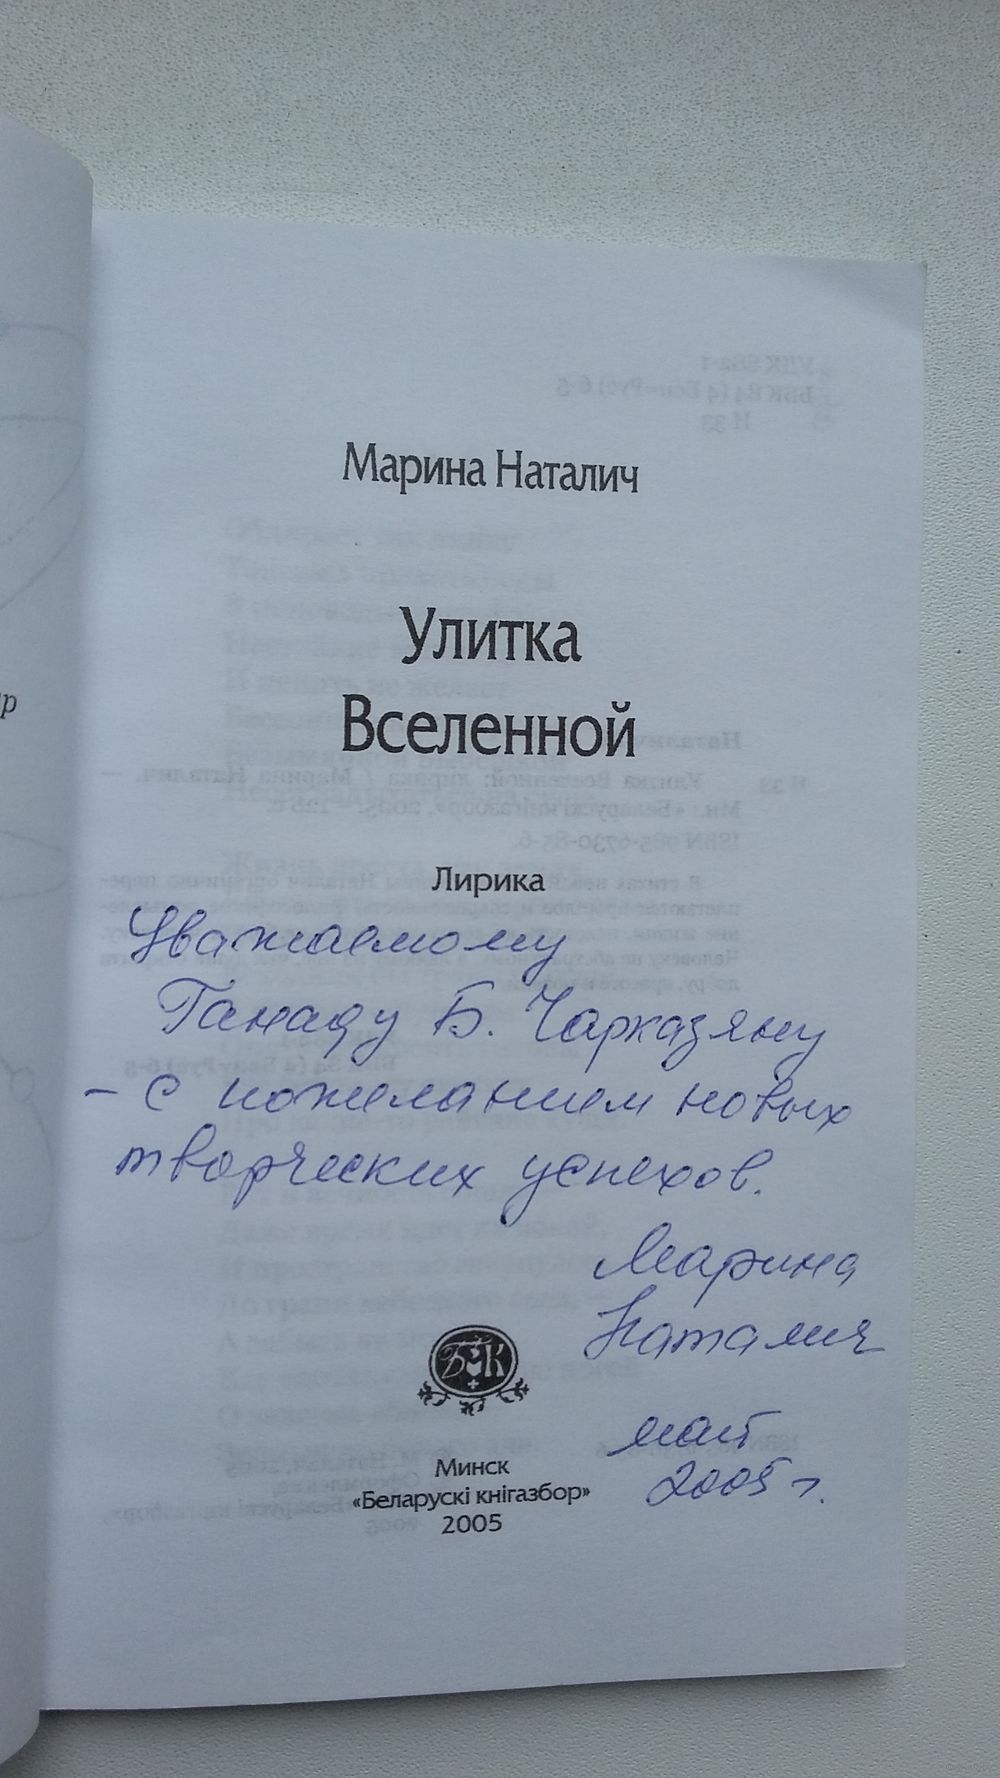 Марина Наталич
Улитка
Вселенной
Лирика
Уважаемому
Ганаду Б. Чарказяну
– с пожеланием новых
творческих успехов.
Марина
Наталич
май
2005 г.
БК
Минск
«Беларускі кнігазбор»
2005